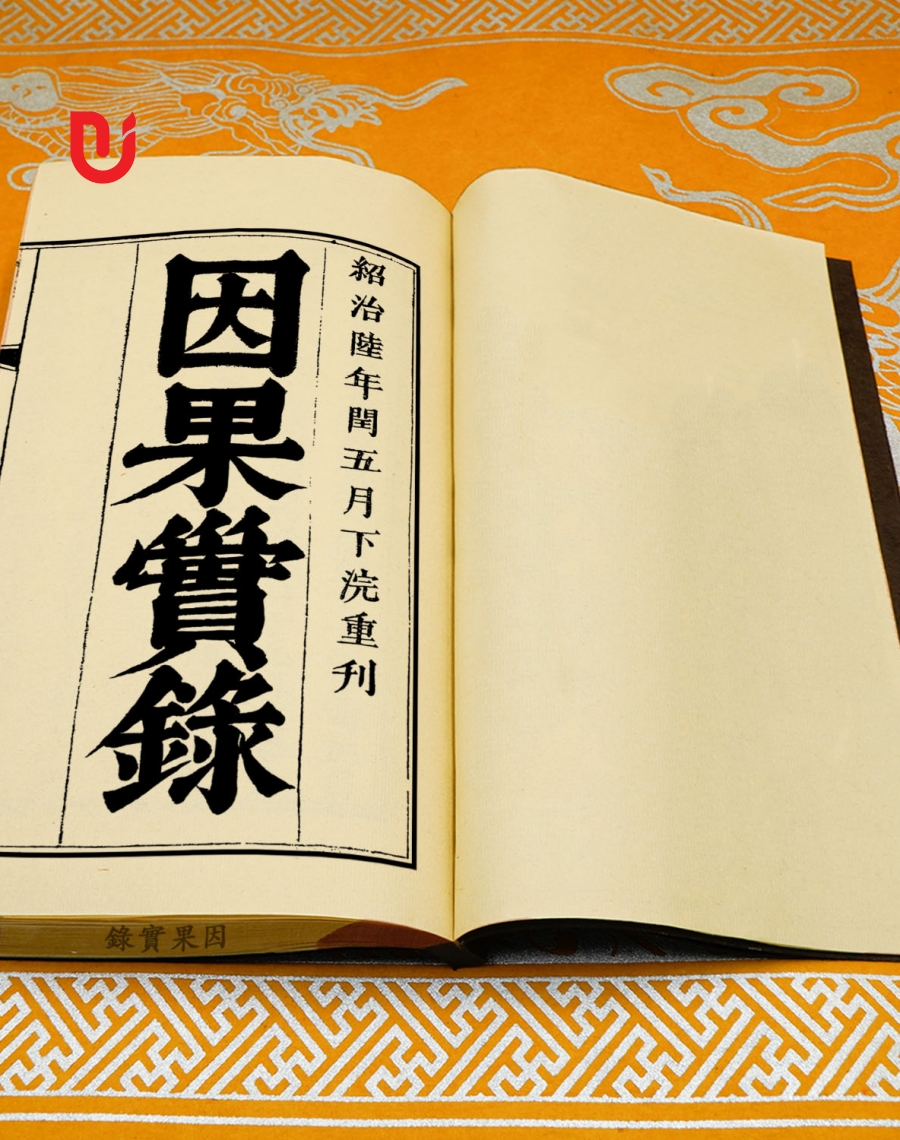 紹治陸年閏五月下浣重刊
因果實錄
因果實錄